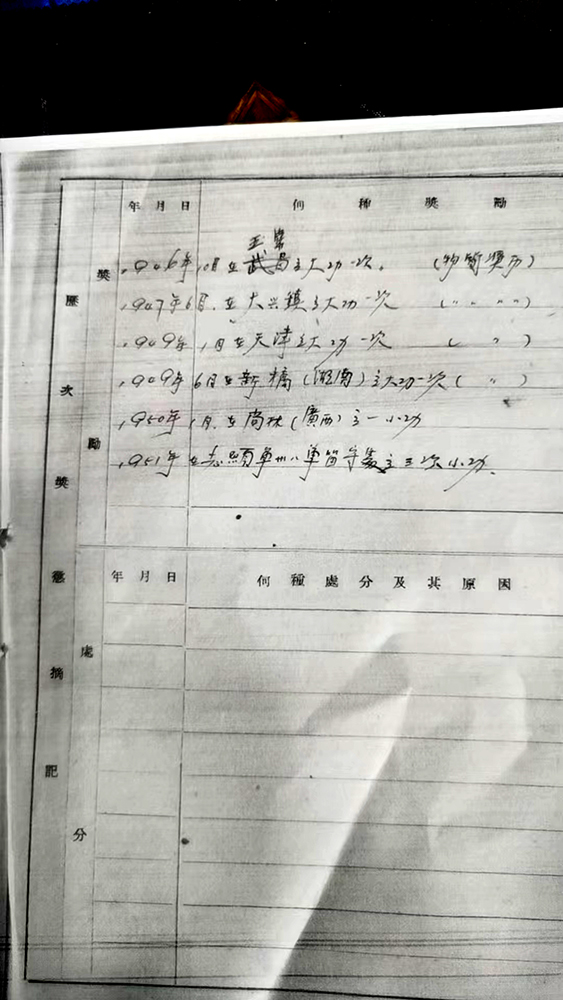 歷次獎懲摘記
獎勵
年月日 何種獎勵
五常
1946年10月在武昌立大功一次。 (物質獎历)
1947年6月.在大兴鎮立大功一次 (〃 〃 〃〃)
1949年1月在天津立大功一次 ( 〃 )
1949年6月在新橋(湖南)立大功一次( 〃 )
1950年1月.在尚林(廣西)立一小功
1951年在 軍留守 立三次小功.
處分
年月日 何種處分及其原因